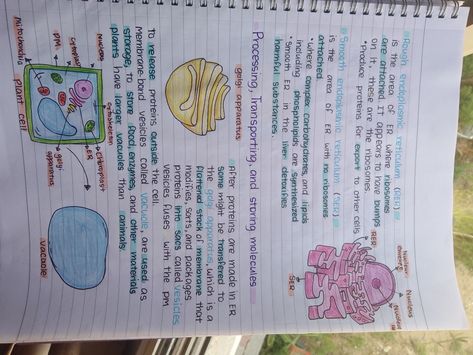 Rough endoplasmic reticulum (RER)
is the area of ER where ribosomes
are attached. It appears to have bumps
on it, these are the ribosomes.
• Produce proteins for export to other cells.
Smooth endoplasmic reticulum (SER)
is the area of ER with no ribosomes
attached.
• where complex carbohydrates, and lipids
including phospholipids are synthesized
• Smooth ER in the liver detoxifies
harmful substances.
Nucleus
RER
SER
Processing, Transporting, and storing molecules
golgi apparatus
After proteins are made in ER
some might be transfered to
the golgi apparatus, which is a
flattened stack of membrane that
modifies, sorts, and packages
proteins into sacs called vesicles
vesicles fuses with the PM
To release proteins outside the cell.
Membrane-bound vesicles called vacuole, are used as
storage, to store food, enzymes, and other materials
plants have larger vacuoles than animals.
Nucleus
Cytoplasm
PM
Mitochondria
Cytoskeleton
Chloroplast
ER
golgi
apparatus
Plant cell
vacuole